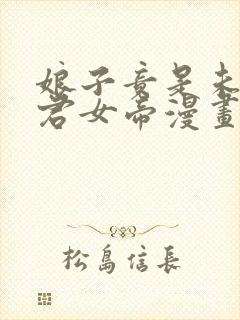 娘子竟是未
君女帝漫畫
松島信長